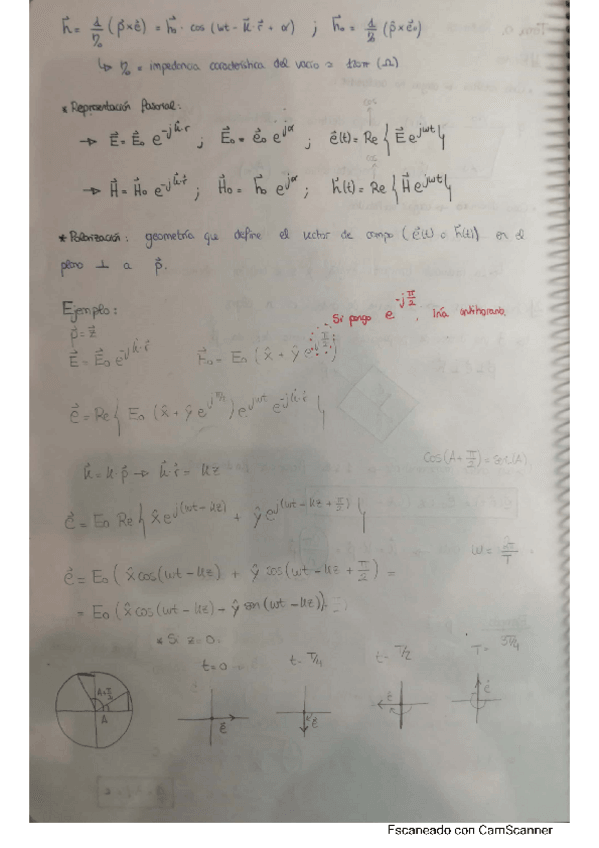 h⃗ = 1/η₀ (p̂ × e⃗) = h⃗₀ · cos(wt - k⃗·r⃗ + α) ; h⃗₀ = 1/η₀ (p̂ × e⃗₀)
↳ η₀ = impedancia característica del vacío = 120π (Ω)
* Representación fasorial:
→ E⃗ = E⃗₀ e^{-jk⃗·r⃗} ; E⃗₀ = e⃗₀ e^{jα} ; e⃗(t) = Re{E⃗ e^{jwt}}
→ H⃗ = H⃗₀ e^{-jk⃗·r⃗} ; H⃗₀ = h⃗₀ e^{jα} ; h⃗(t) = Re{H⃗ e^{jwt}}
* Polarización: geometría que define el vector de campo (e⃗(t) o h⃗(t)) en el
plano ⊥ a p⃗.
Ejemplo:
Si pongo e^{-jπ/2}, iría antihorario.
p̂ = ẑ
E⃗ = E⃗₀ e^{-jk⃗·r⃗} E⃗₀ = E₀ (x̂ + ŷ e^{jπ/2})
e⃗ = Re{E₀ (x̂ + ŷ e^{jπ/2}) e^{jwt} e^{-jk⃗·r⃗}}
k⃗ = k·p⃗ → k⃗·r⃗ = kz
cos(A + π/2) = sen(A)
e⃗ = E₀ Re{x̂ e^{j(wt - kz)} + ŷ e^{j(wt - kz + π/2)}}
w = 2π/T
e⃗ = E₀ (x̂ cos(wt - kz) + ŷ cos(wt - kz + π/2)) =
= E₀ (x̂ cos(wt - kz) - ŷ sen(wt - kz))
* Si z = 0.
t = 0 t = T/4 t = T/2 T = 3T/4
A + π/2
A
e⃗ e⃗ e⃗ e⃗
Escaneado con CamScanner